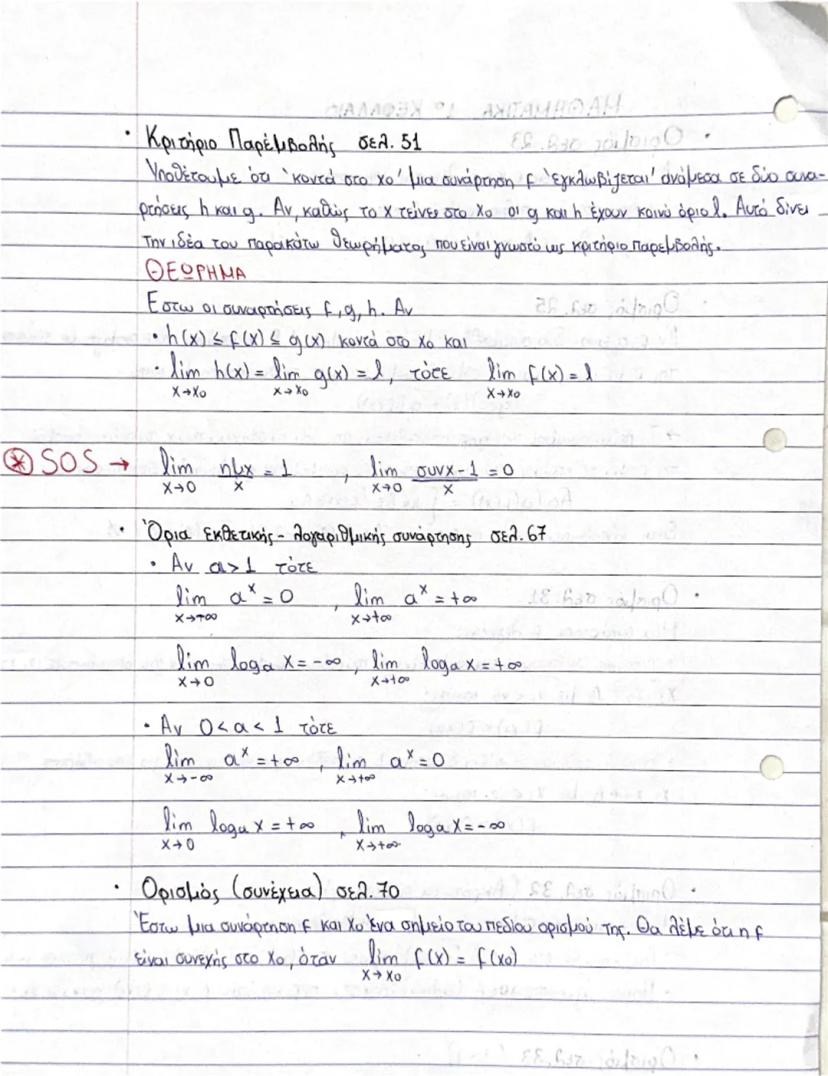 • Κριτήριο Παρεμβολής σελ. 51
Υποθέτουμε ότι 'κοντά στο xο' μια συνάρτηση f 'εγκλωβίζεται' ανάμεσα σε δύο συνα-
ρτήσεις h και g. Αν, καθώς το x τείνει στο xο οι g και h έχουν κοινό όριο l. Αυτό δίνει
την ιδέα του παρακάτω θεωρήματος που είναι γνωστό ως κριτήριο παρεμβολής.
ΘΕΩΡΗΜΑ
Έστω οι συναρτήσεις f, g, h. Αν
• h(x) ≤ f(x) ≤ g(x) κοντά στο xο και
• lim h(x) = lim g(x) = l, τότε lim f(x) = l
x→xο x→xο x→xο
* SOS → lim ημx/x = 1 , lim συνx-1/x = 0
x→0 x→0
• Όρια εκθετικής - λογαριθμικής συνάρτησης σελ. 67
• Αν a > 1 τότε
lim aˣ = 0 , lim aˣ = +∞
x→-∞ x→+∞
lim loga x = -∞, lim loga x = +∞
x→0 x→+∞
• Αν 0 < a < 1 τότε
lim aˣ = +∞ , lim aˣ = 0
x→-∞ x→+∞
lim loga x = +∞ , lim loga x = -∞
x→0 x→+∞
• Ορισμός (συνέχεια) σελ. 70
Έστω μια συνάρτηση f και xο ένα σημείο του πεδίου ορισμού της. Θα λέμε ότι η f
είναι συνεχής στο xο, όταν lim f(x) = f(xο)
x→xο